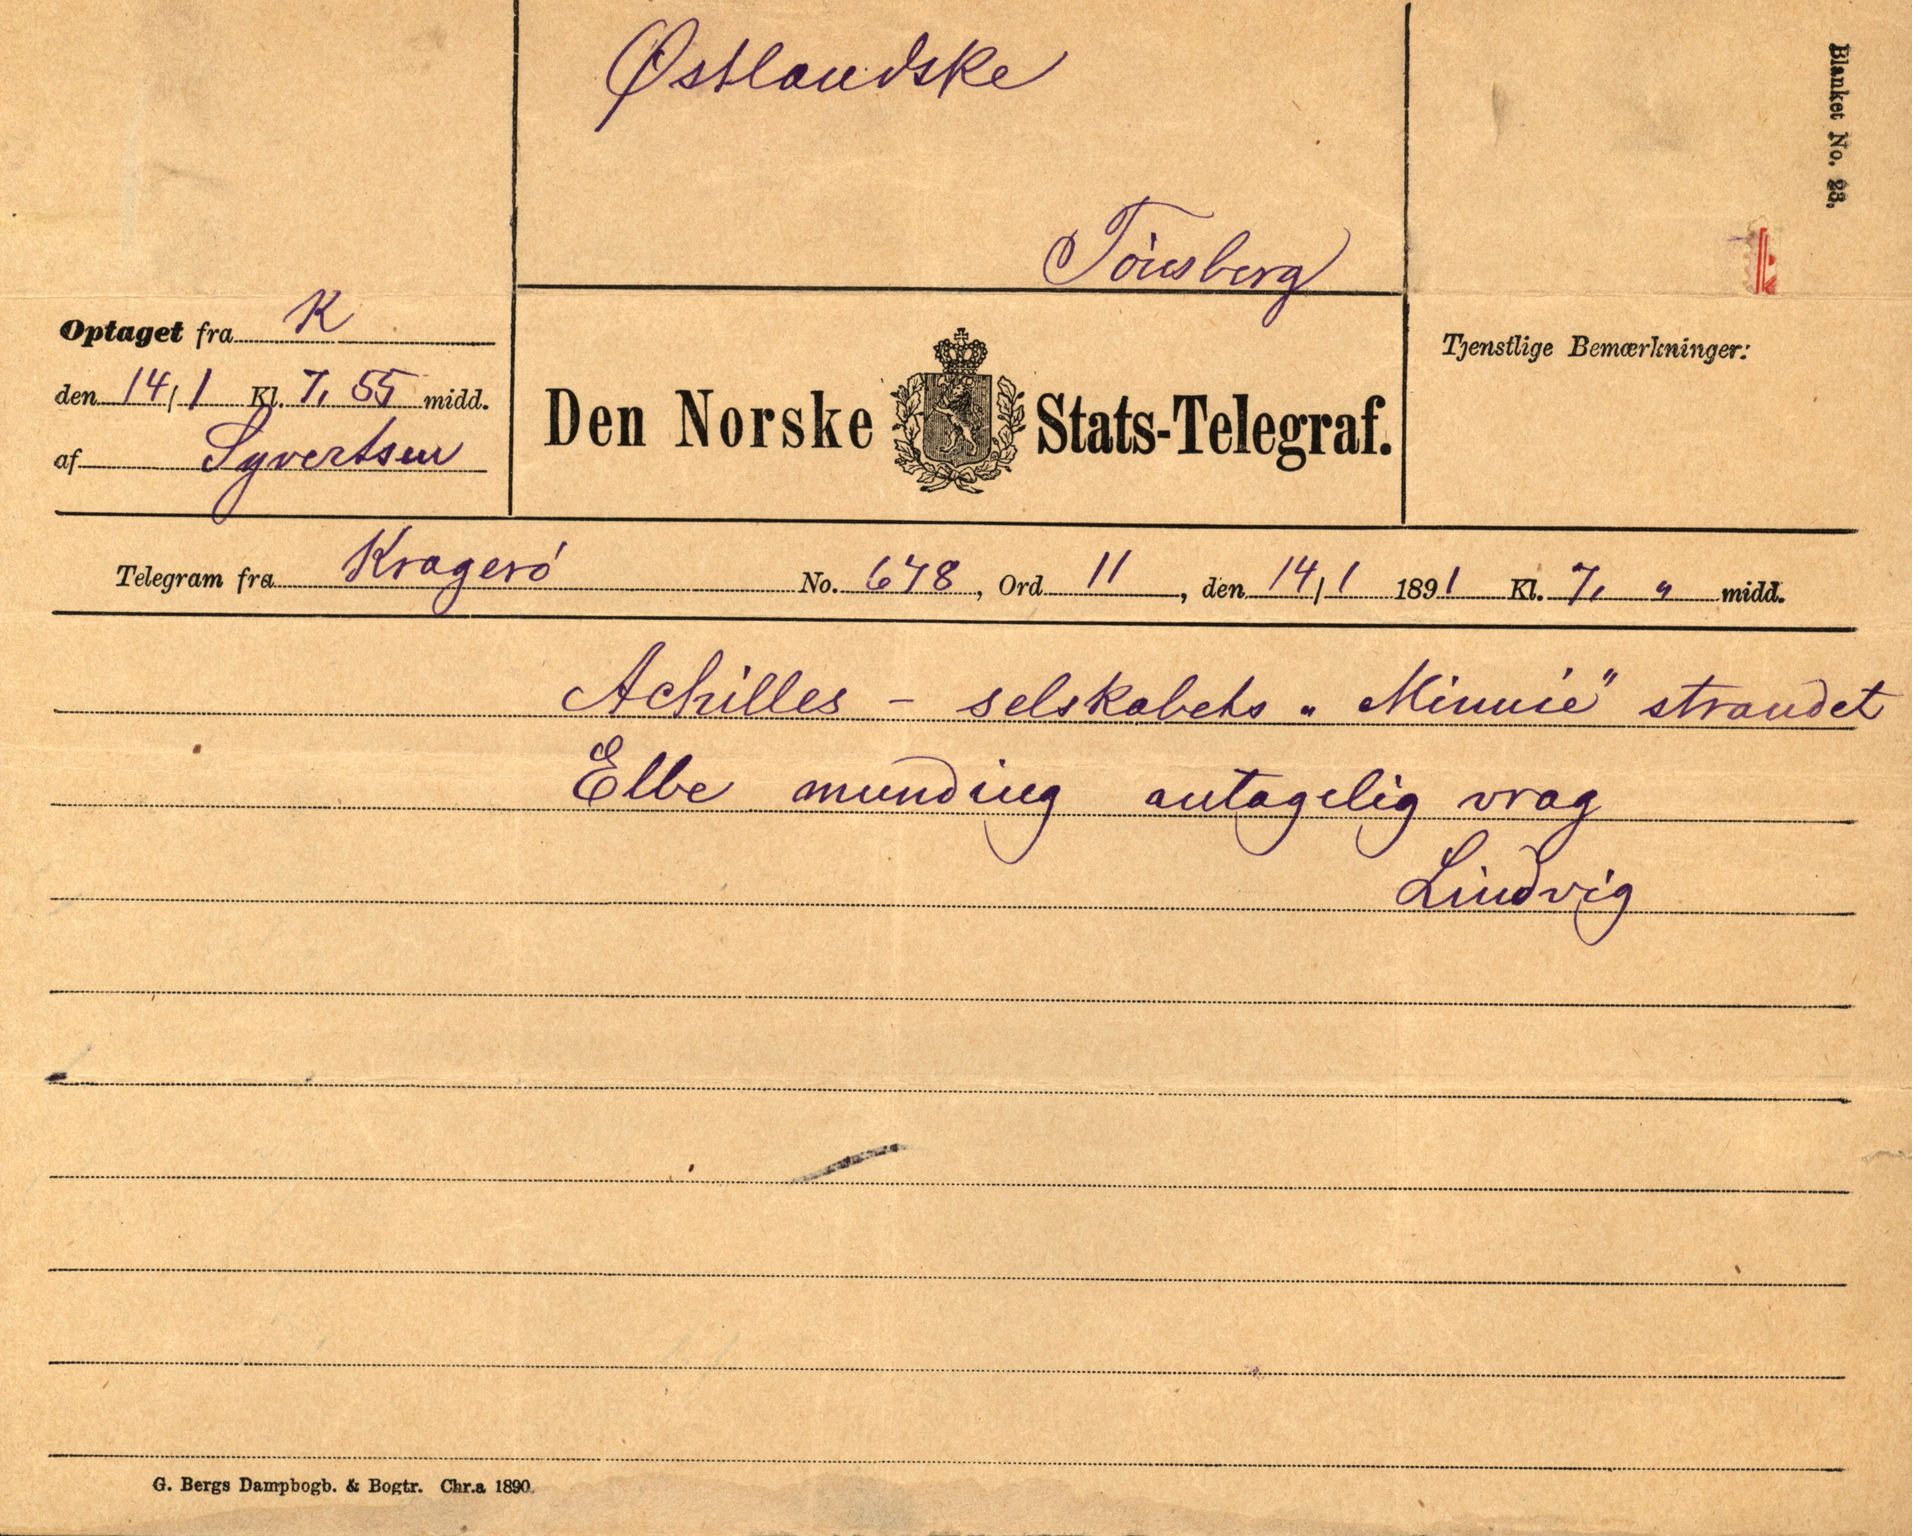 Østlandske
Tönsberg
Blanket No. 23.
Optaget fra K
den 14/1 Kl. 7,55 midd.
af Syvertsen
Den Norske Stats-Telegraf.
Tjenstlige Bemærkninger:
Telegram fra Kragerö No. 678, Ord 11, den 14/1 1891 Kl. 7, " midd.
Achilles - selskabets "Minnie" strandet
Elbe munding antagelig vrag
Lindvig
G. Bergs Dampbogb. & Bogtr. Chr.a 1890.